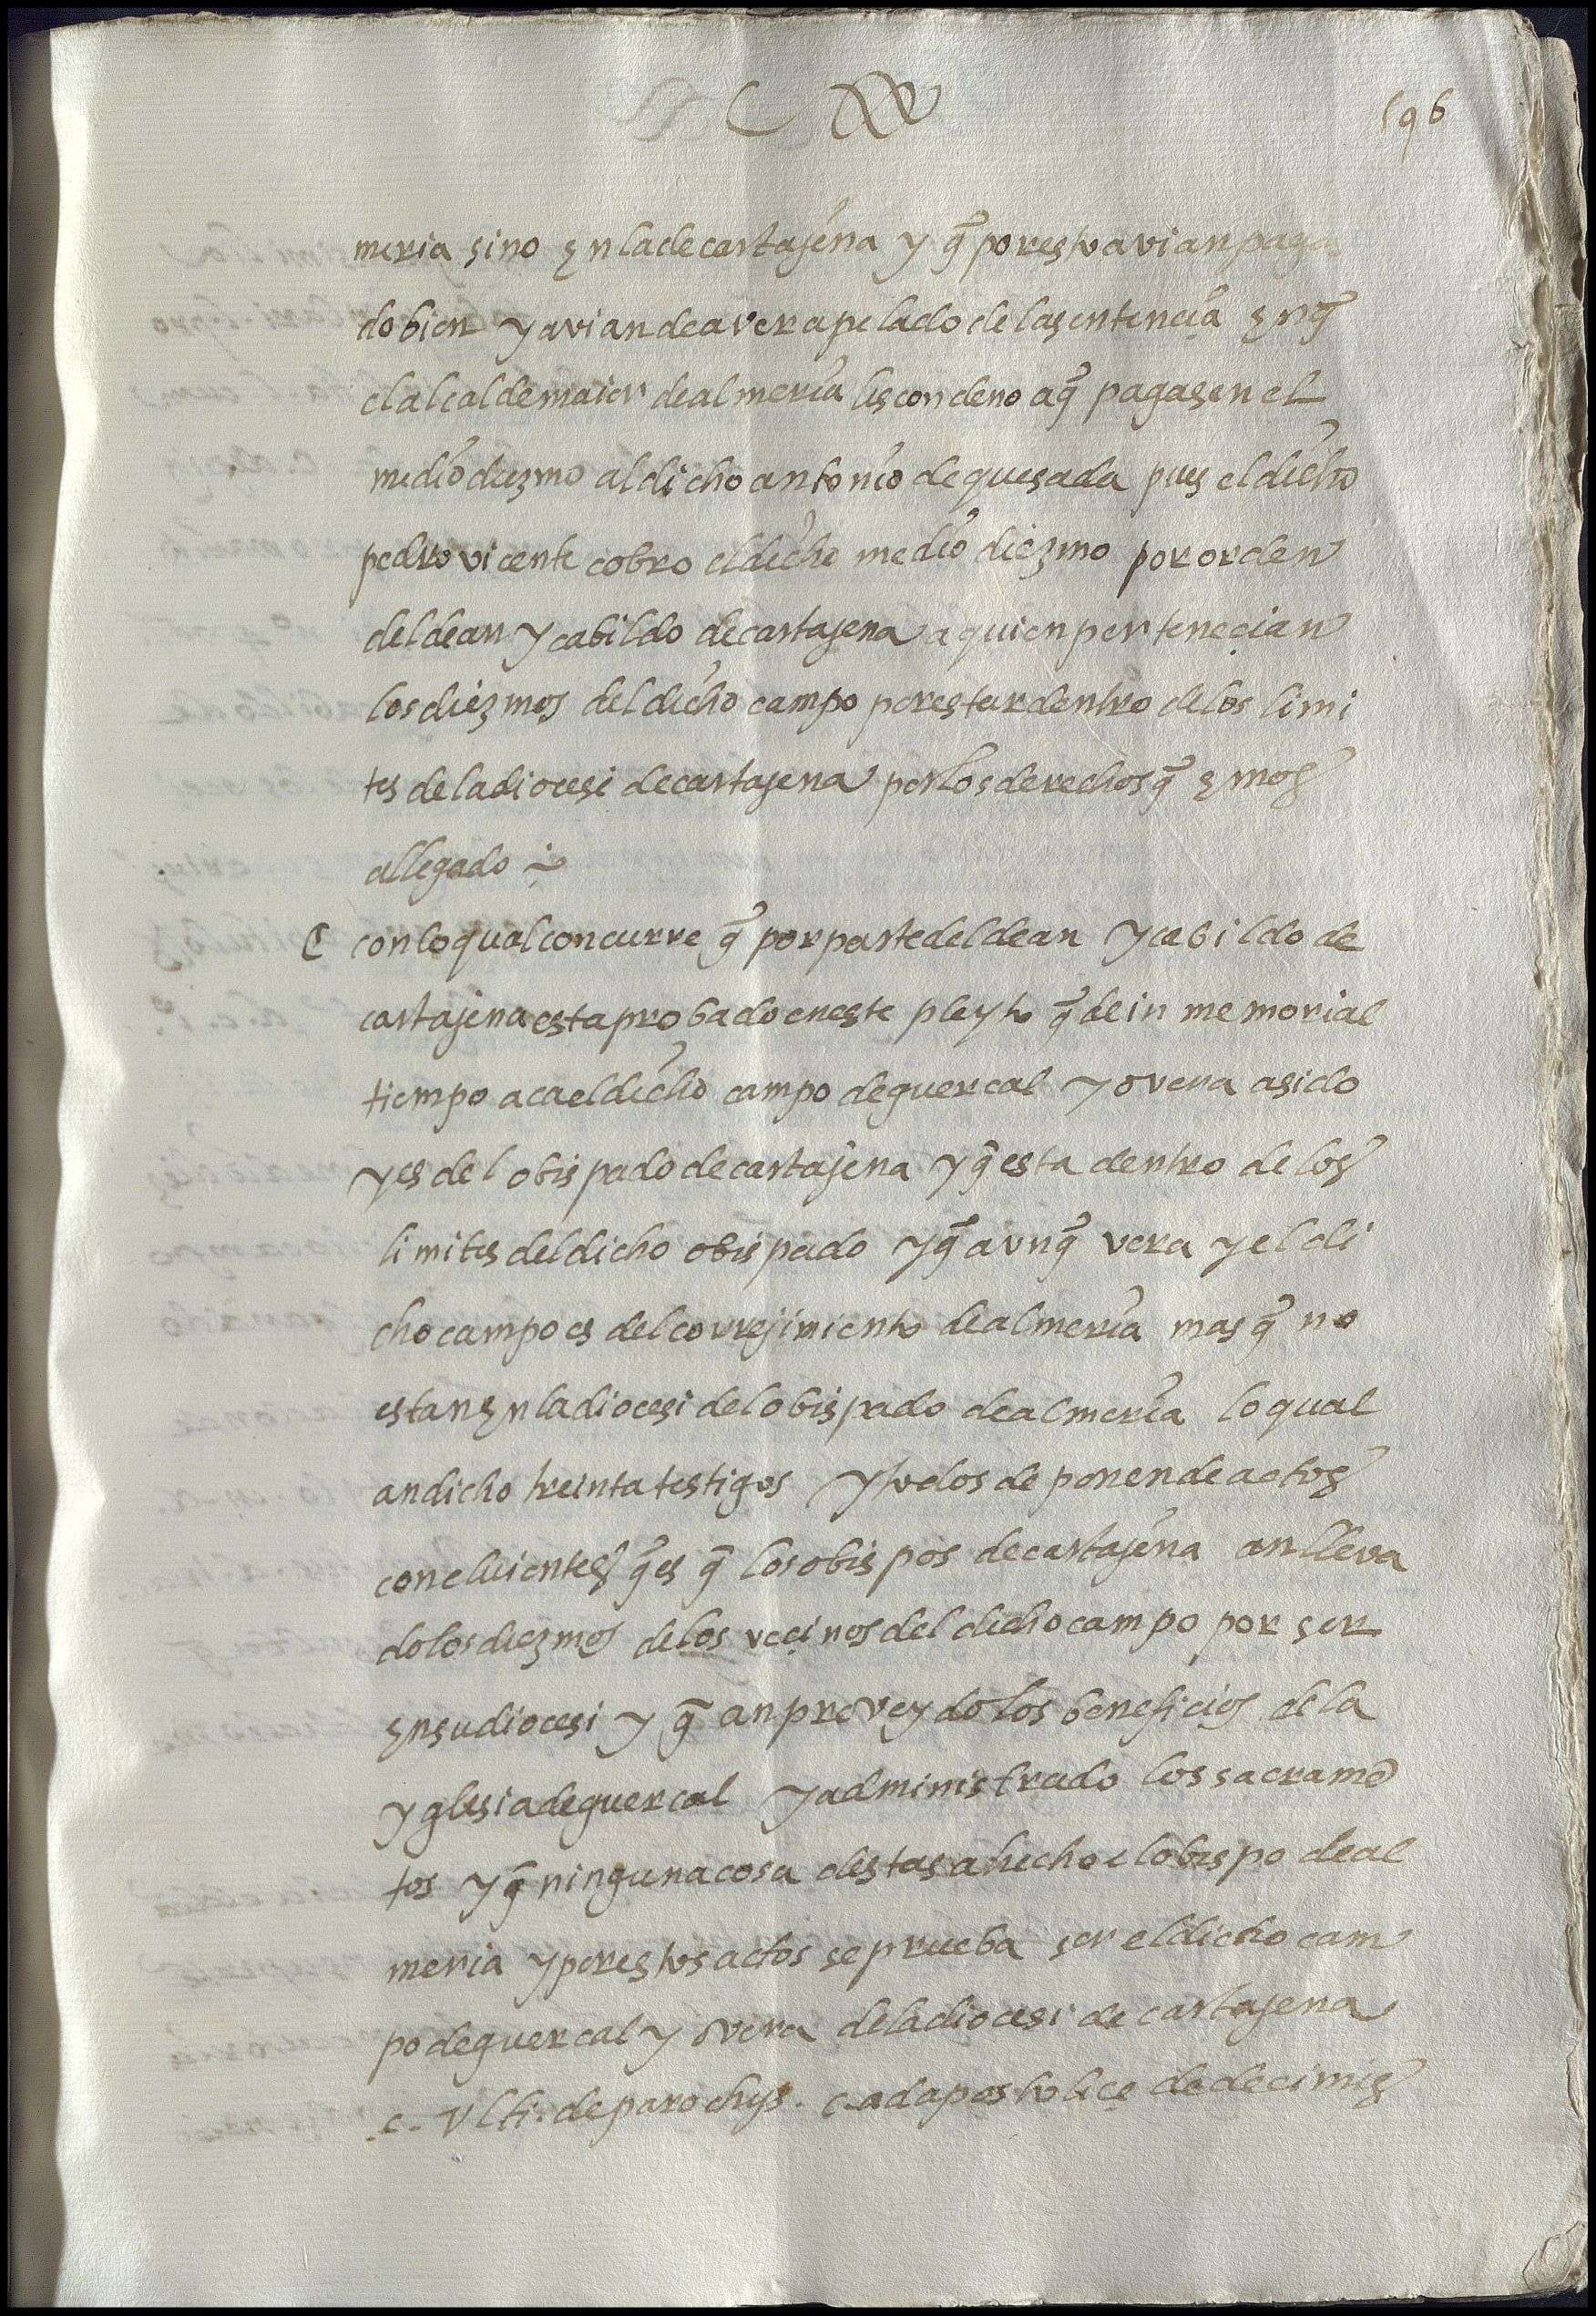 196
meria sino en la de cartajena y q̃ por esto avian paga
do bien y avian de aver apelado de la sentencia en q̃
el alcalde maior de almeria les condeno a q̃ pagasen el
medio diezmo al dicho antonio de quesada pues el dicho
pedro vicente cobro el dicho medio diezmo por orden
del dean y cabildo de cartajena a quien perteneçian
los diezmos del dicho campo por estar dentro de los limi
tes de la diocesi de cartajena por los derechos q̃ emos
allegado
con lo qual concurre q̃ por parte del dean y cabildo de
cartajena esta probado en este pleyto q̃ de in memorial
tiempo aca el dicho campo de guercal y overa a sido
y es del obispado de cartajena y q̃ esta dentro de los
limites del dicho obispado y q̃ avnq̃ vera y el di
cho campo es del correjimiento de almeria mas q̃ no
estan en la diocesi del obispado de almeria lo qual
an dicho treinta testigos y todos deponen de actos
concluientes q̃ es q̃ los obispos de cartajena an lleva
do los diezmos de los veçinos del dicho campo por ser
en su diocesi y q̃ an proveydo los beneficios de la
yglesia de guercal y administrado los sacramẽ
tos y q̃ ninguna cosa destas a hecho el obispo de al
meria y por estos actos se prueba ser el dicho cam
po de guercal y overa de la diocesi de cartajena
c. Ulti. de parochijs. c. ad apostolicę de decimis